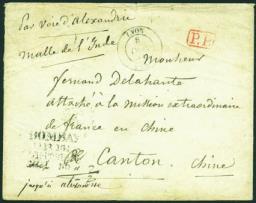 par voie d'alexandrie
malle de l'Inde
LYON
P.P.
Monsieur
fernand Delahante
attaché à la mission extraordinaire
de france en chine
BOMBAY
Canton
chine
jusqu'à alexandrie